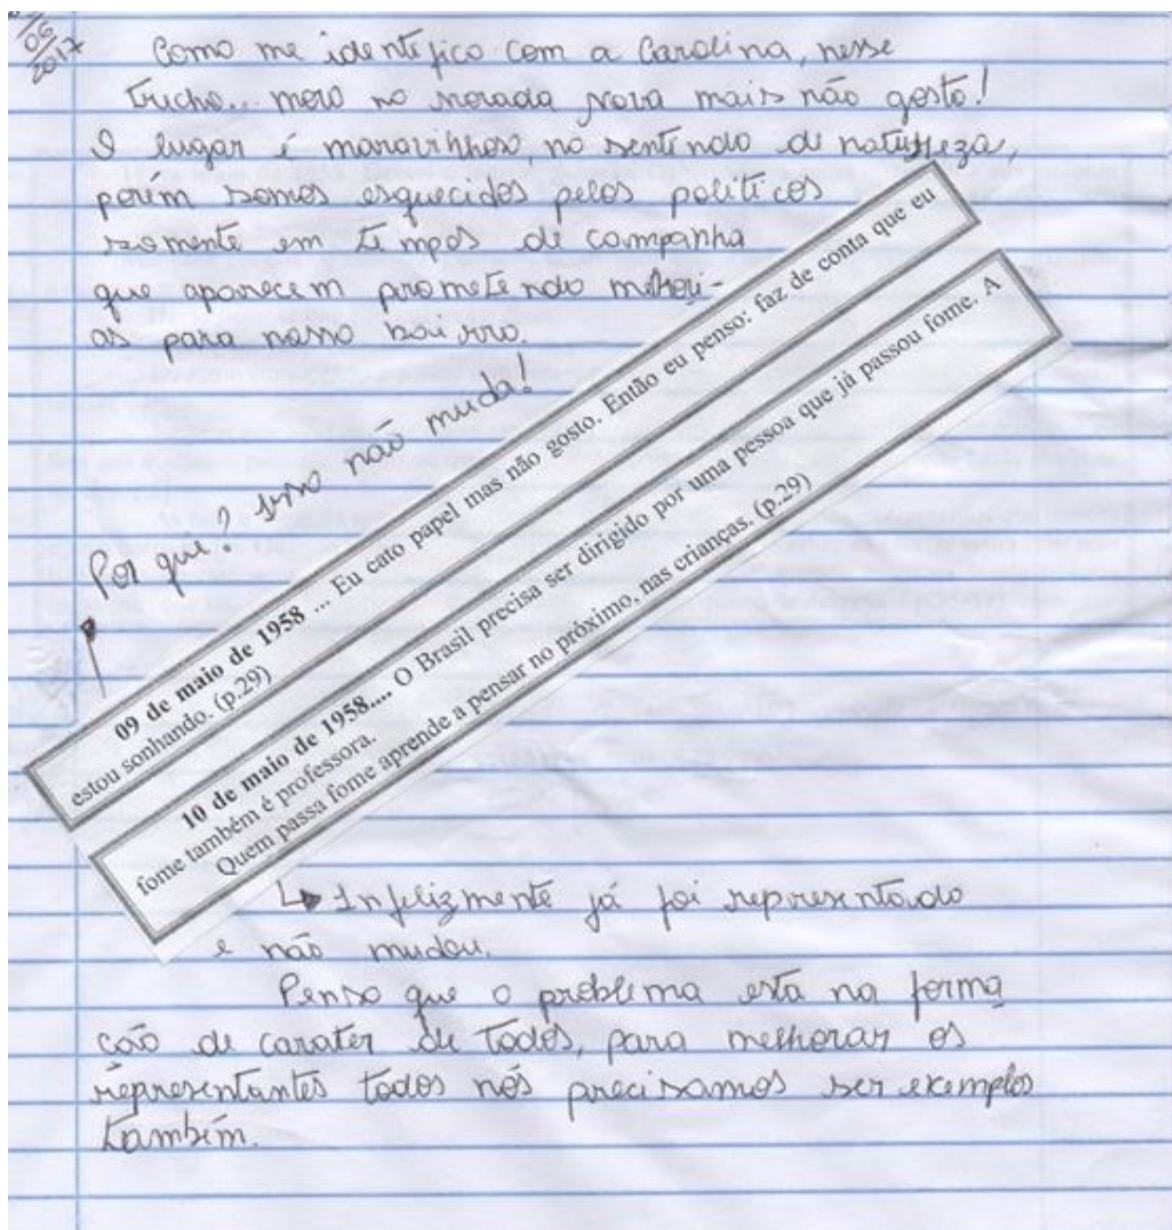 06
2017
Como me identifico com a Carolina, nesse
trecho... moro no morada nova mais não gosto!
O lugar é maravilhoso, no sentindo de natureza,
porém somos esquecidos pelos políticos
somente em tempos de campanha
que aparecem prometendo melhori-
as para nosso bairro.
Por que? isso não muda!
09 de maio de 1958 ... Eu cato papel mas não gosto. Então eu penso: faz de conta que eu
estou sonhando. (p.29)
10 de maio de 1958.... O Brasil precisa ser dirigido por uma pessoa que já passou fome. A
fome também é professora.
Quem passa fome aprende a pensar no próximo, nas crianças. (p.29)
Infelizmente já foi representado
e não mudou.
Penso que o problema está na forma
ção de carater de todos, para melhorar os
representantes todos nós precisamos ser exemplos
também.